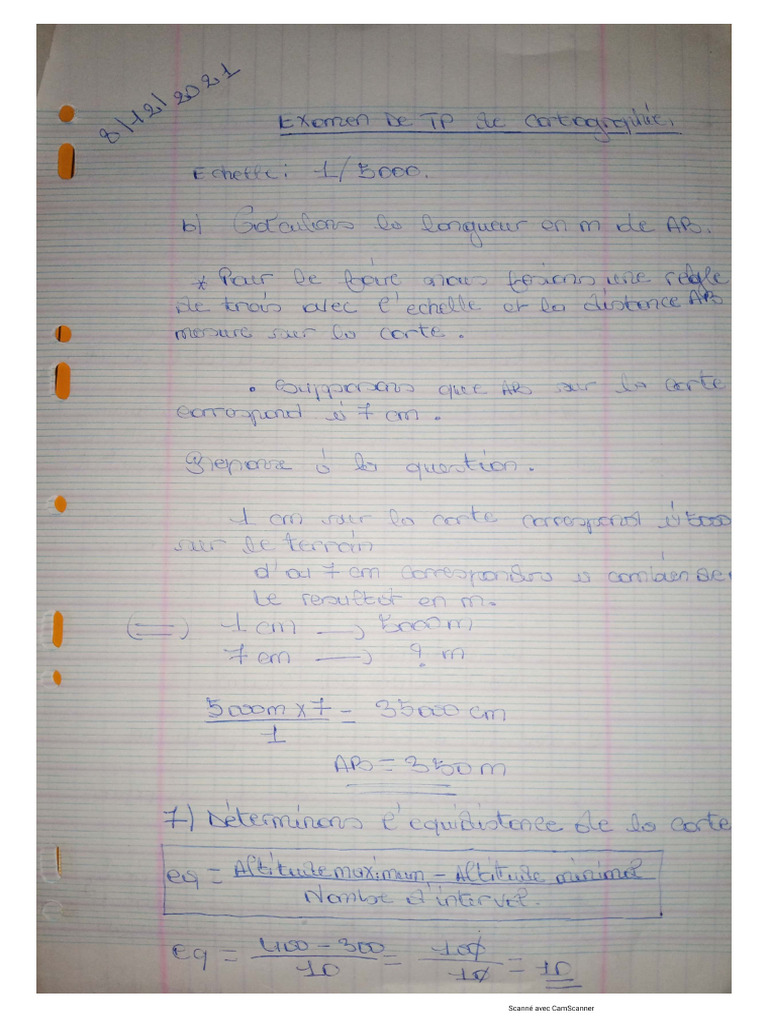 8/12/2021
Examen De TP de Cartographie.
Echelle : 1/5000.
b) Calculons la longueur en m de AB.
* Pour le faire nous ferons une règle
de trois avec l'echelle et la distance AB
mesure sur la carte.
• Supposons que AB sur la carte
correspond à 7 cm.
Reponse à la question.
1 cm sur la carte correspond à
sur le terrain
d'où 7 cm correspondra à combien
Le resultat en m.
(=) 1 cm → 5000 m
7 cm → ? m
5000m x 7 = 35000 cm
1
AB = 350 m
7) Déterminons l'equidistance de la carte
eq = Altitude maximum - Altitude minimal
Nombre d'interval.
eq = 400 - 300 = 100 = 10
10 10
Scanné avec CamScanner